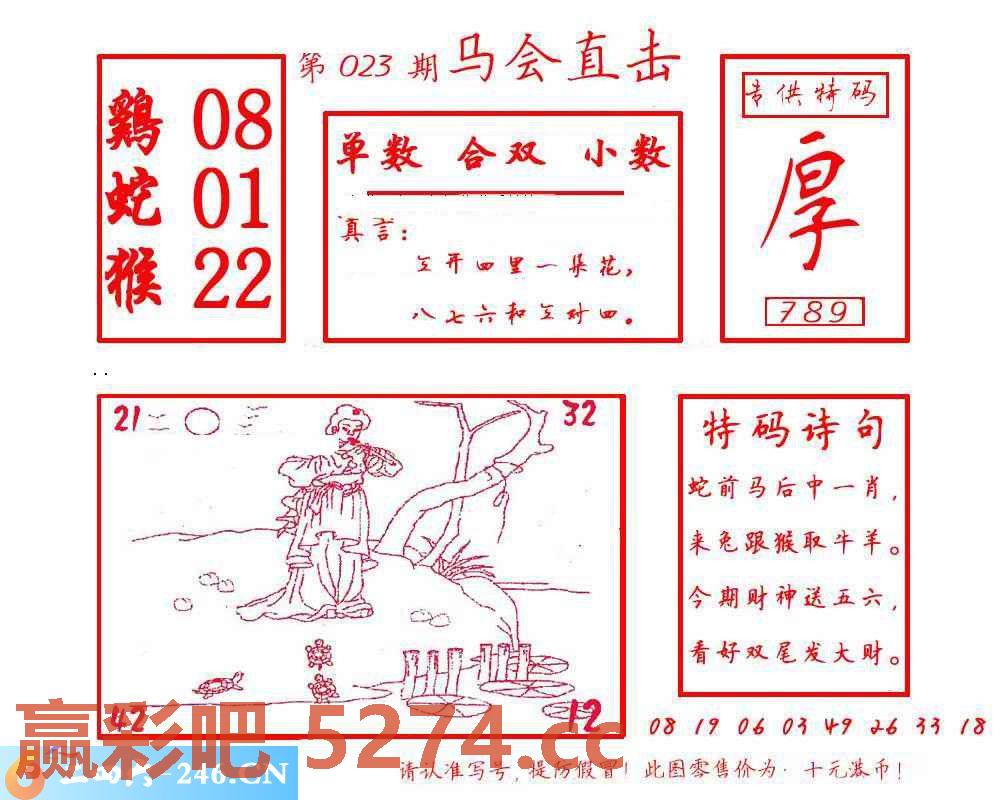 第 023 期 马会直击
鷄 08
蛇 01
猴 22
单数 合双 小数
真言：
三开四里一朵花，
八七六和三对四。
专供特码
厚
789
21
32
42
12
特码诗句
蛇前马后中一肖，
来兔跟猴取牛羊。
今期财神送五六，
看好双尾发大财。
08 19 06 03 49 26 33 18
赢彩吧 5274.cc
246.CN
请认准写号，提防假冒！此图零售价为·十元港币！